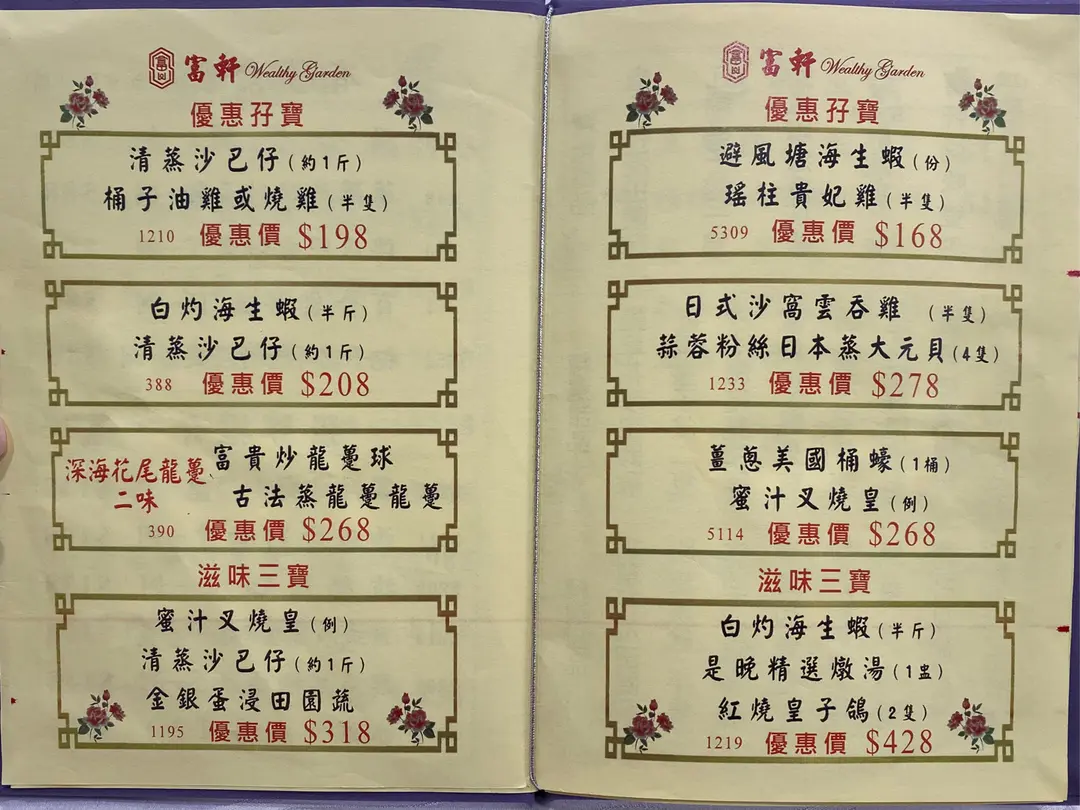 富軒 Wealthy Garden
優惠孖寶
清蒸沙巴仔(約1斤)
桶子油雞或燒雞(半隻)
1210 優惠價 $198
白灼海生蝦(半斤)
清蒸沙巴仔(約1斤)
388 優惠價 $208
深海花尾龍躉二味
富貴炒龍躉球
古法蒸龍躉龍躉
390 優惠價 $268
滋味三寶
蜜汁叉燒皇(例)
清蒸沙巴仔(約1斤)
金銀蛋浸田園蔬
1195 優惠價 $318
富軒 Wealthy Garden
優惠孖寶
避風塘海生蝦(份)
瑤柱貴妃雞(半隻)
5309 優惠價 $168
日式沙窩雲吞雞 (半隻)
蒜蓉粉絲日本蒸大元貝(4隻)
1233 優惠價 $278
薑蔥美國桶蠔(1桶)
蜜汁叉燒皇(例)
5114 優惠價 $268
滋味三寶
白灼海生蝦(半斤)
是晚精選燉湯(1盅)
紅燒皇子鴿(2隻)
1219 優惠價 $428